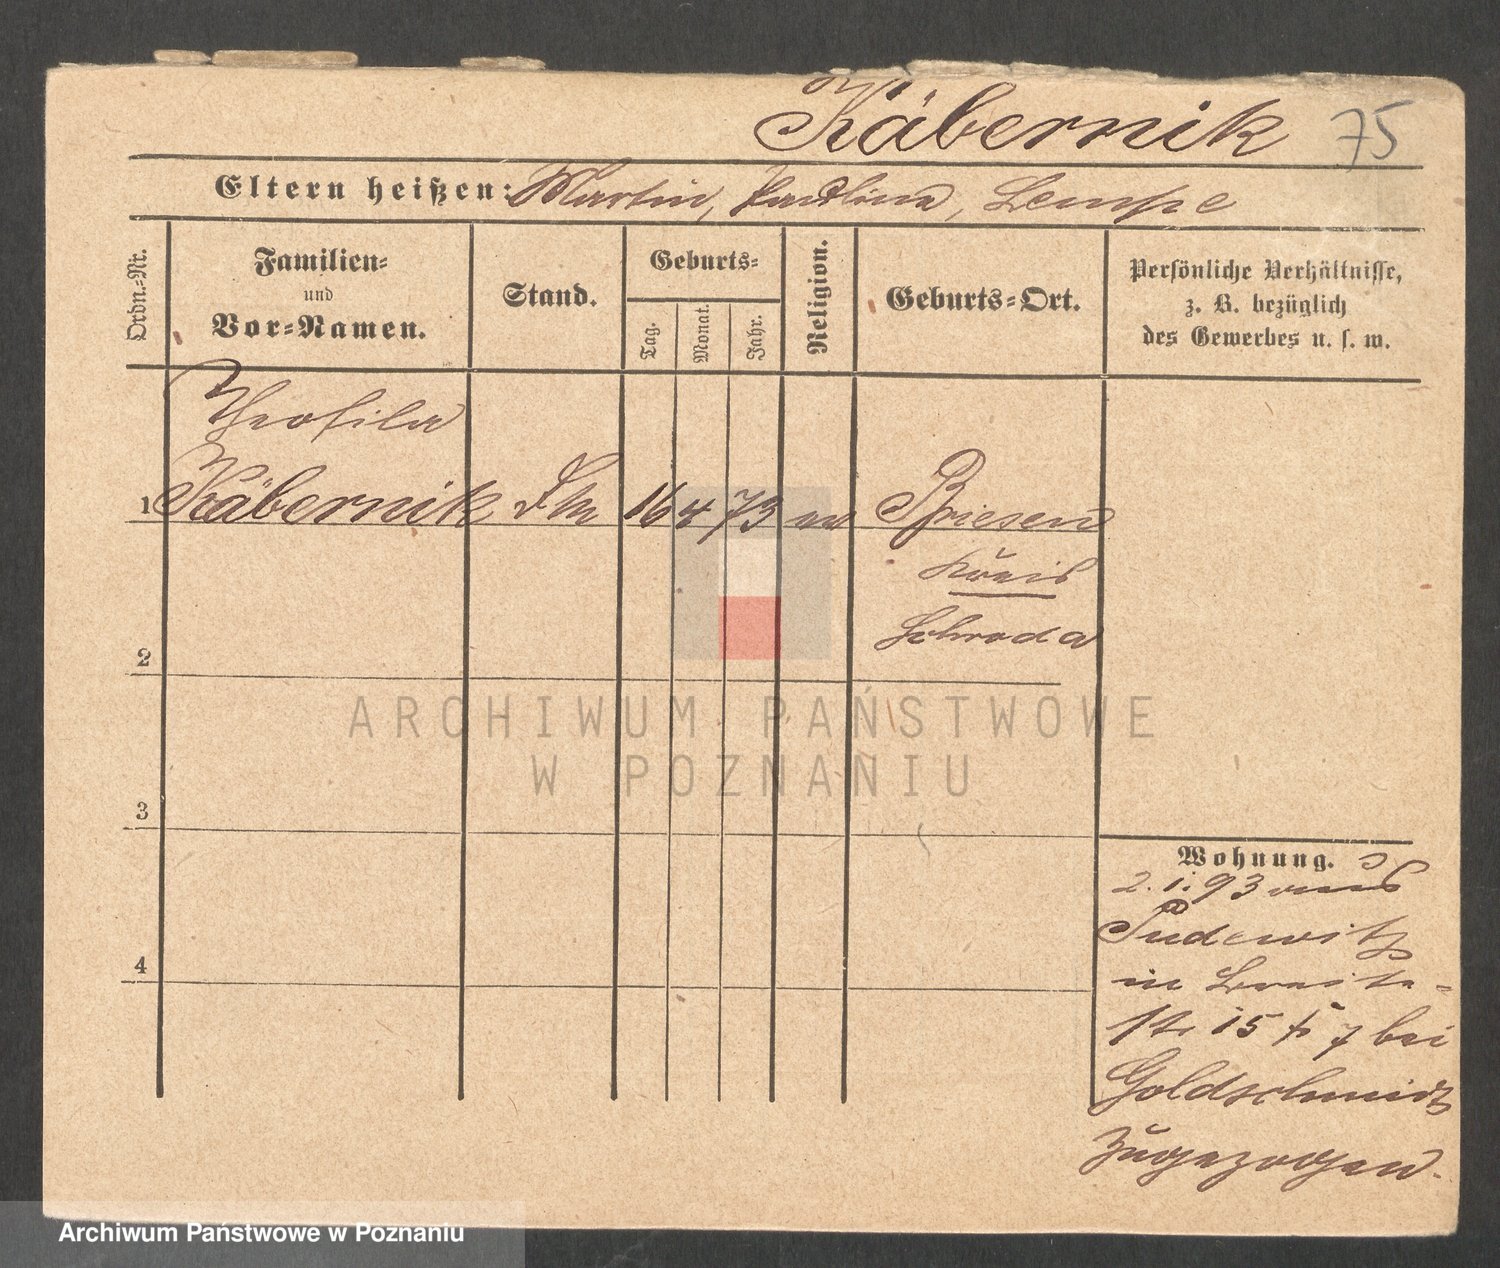 Käbernik 75
Eltern heißen: Martin, Paulina, Lempe
Ordn.-Nr.
Familien-
und
Vor-Namen.
Stand.
Geburts-
Tag.
Monat.
Jahr.
Religion.
Geburts-Ort.
Persönliche Verhältnisse,
z. B. bezüglich
des Gewerbes u. s. w.
Theofila
1 Käbernik 16 4 73 ev Briesen
Kreis
Schroda
2
3
4
Wohnung.
2. 1. 93 aus
Pudewitz
in Breite-
str 15 bei
Goldschmidt
zugezogen.
ARCHIWUM PAŃSTWOWE
W POZNANIU
Archiwum Państwowe w Poznaniu